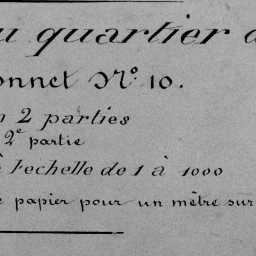 u quartier d
onnet Nº 10.
n 2 parties
2e partie
à l'echelle de 1 à 1000
e papier pour un mètre sur